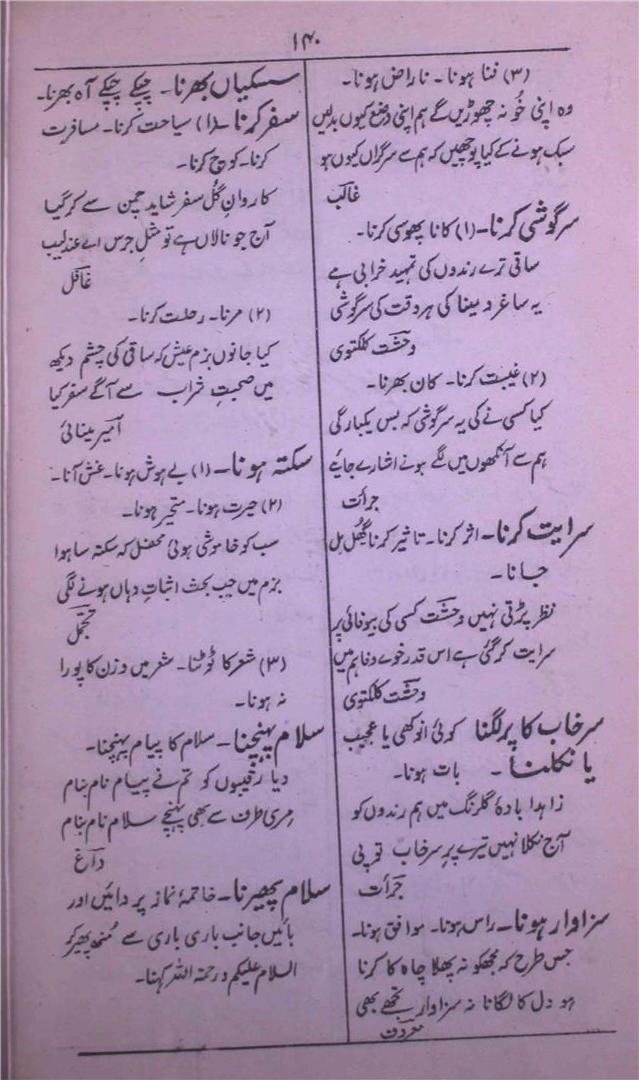 ۱۴۰
(۳) خفا ہونا۔ ناراض ہونا۔
وہ اپنی خُو نہ چھوڑیں گے ہم اپنی وضع کیوں بدلیں
سبک ہونے کے کیا پوچھیں کہ ہم سے سرگراں کیوں ہو
غالب
سرگوشی کرنا۔ (۱) کانا پھوسی کرنا۔
ساقی ترے رندوں کی تمہید خرابی ہے
یہ ساغر و مینا کی ہر وقت کی سرگوشی
وحشت کلکتوی
(۲) غیبت کرنا۔ کان بھرنا۔
کیا کسی نے کی یہ سرگوشی کہ بس یکبارگی
ہم سے آنکھوں میں لگے ہونے اشارے جائیے
جرأت
سرایت کرنا۔ اثر کرنا۔ تاثیر کرنا گھُل مل
جانا۔
نظر پڑتی نہیں وحشت کسی کی بیوفائی پر
سرایت کر گئی ہے اس قدر خوے وفا ہم میں
وحشت کلکتوی
سرخاب کا پر لگنا کوئی انوکھی یا عجیب
یا نکلنا۔ بات ہونا۔
زاہدا بادۂ گلرنگ میں ہم رندوں کو
آج نکلا نہیں تیرے پرِ سرخاب تو پی
جرأت
سزاوار ہونا۔ راس ہونا۔ موافق ہونا۔
جس طرح کہ مجھکو نہ پھلا چاہ کا کرنا
ہو دل کا لگانا نہ سزاوار تجھے بھی
معروف
سسکیاں بھرنا۔ چپکے چپکے آہ بھرنا۔
سفر کرنا۔ (۱) سیاحت کرنا۔ مسافرت
کرنا۔ کوچ کرنا۔
کاروانِ گُل سفر شاید چمن سے کر گیا
آج جو نالاں ہے تو مثلِ جرس اے عندلیب
غافل
(۲) مرنا۔ رحلت کرنا۔
کیا جانوں بزم عیش کہ ساقی کی چشم دیکھ
میں صحبتِ شراب سے آگے سفر کیا
امیر مینائی
سکتہ ہونا۔ (۱) بے ہوش ہونا۔ غش آنا۔
(۲) حیرت ہونا۔ متحیر ہونا۔
سب کو خاموشی ہوئی محفل کہ سکتہ سا ہوا
بزم میں جب بحث اثباتِ دہاں ہونے لگی
تجمل
(۳) شعر کا ٹوٹنا۔ شعر میں وزن کا پورا
نہ ہونا۔
سلام پہنچنا۔ سلام کا پیام پہنچنا۔
دیا رقیبوں کو تم نے پیام نام بنام
مری طرف سے بھی پہنچے سلام نام بنام
داغ
سلام پھیرنا۔ خاتمۂ نماز پر دائیں اور
بائیں جانب باری باری سے مُنھ پھیر کر
السلام علیکم و رحمۃ اللہ کہنا۔